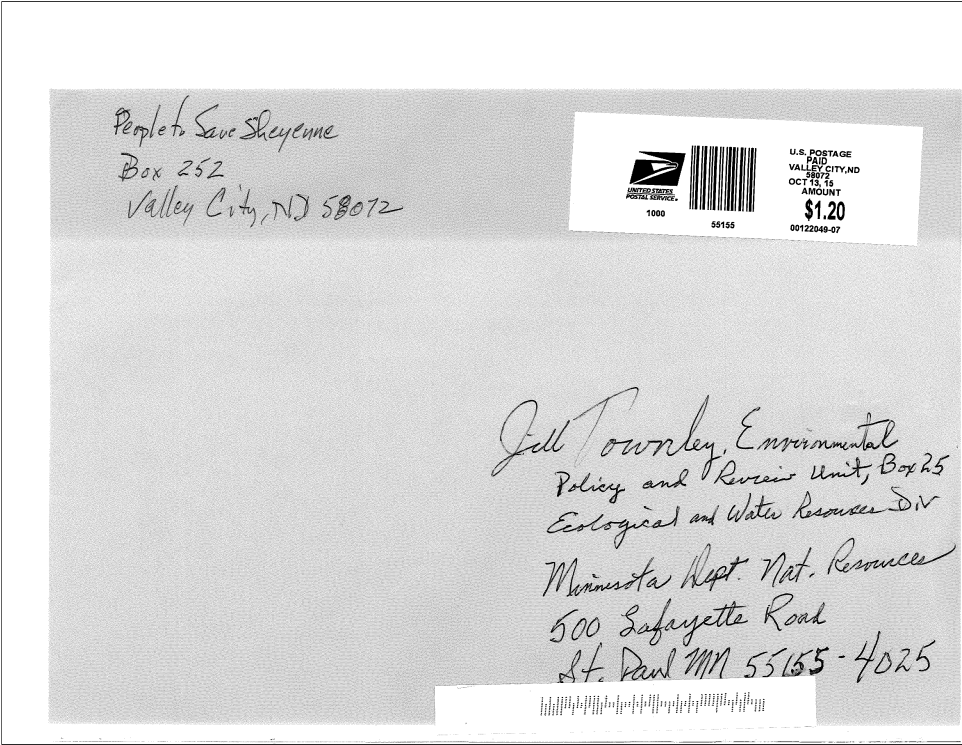 People to Save Sheyenne
Box 252
Valley City, ND 58072
UNITED STATES
POSTAL SERVICE®
1000
55155
U.S. POSTAGE
PAID
VALLEY CITY, ND
58072
OCT 13, 15
AMOUNT
$1.20
00122049-07
Jill Townley, Environmental
Policy and Review Unit, Box 25
Ecological and Water Resources Div
Minnesota Dept. Nat. Resources
500 Lafayette Road
St. Paul MN 55155-4025